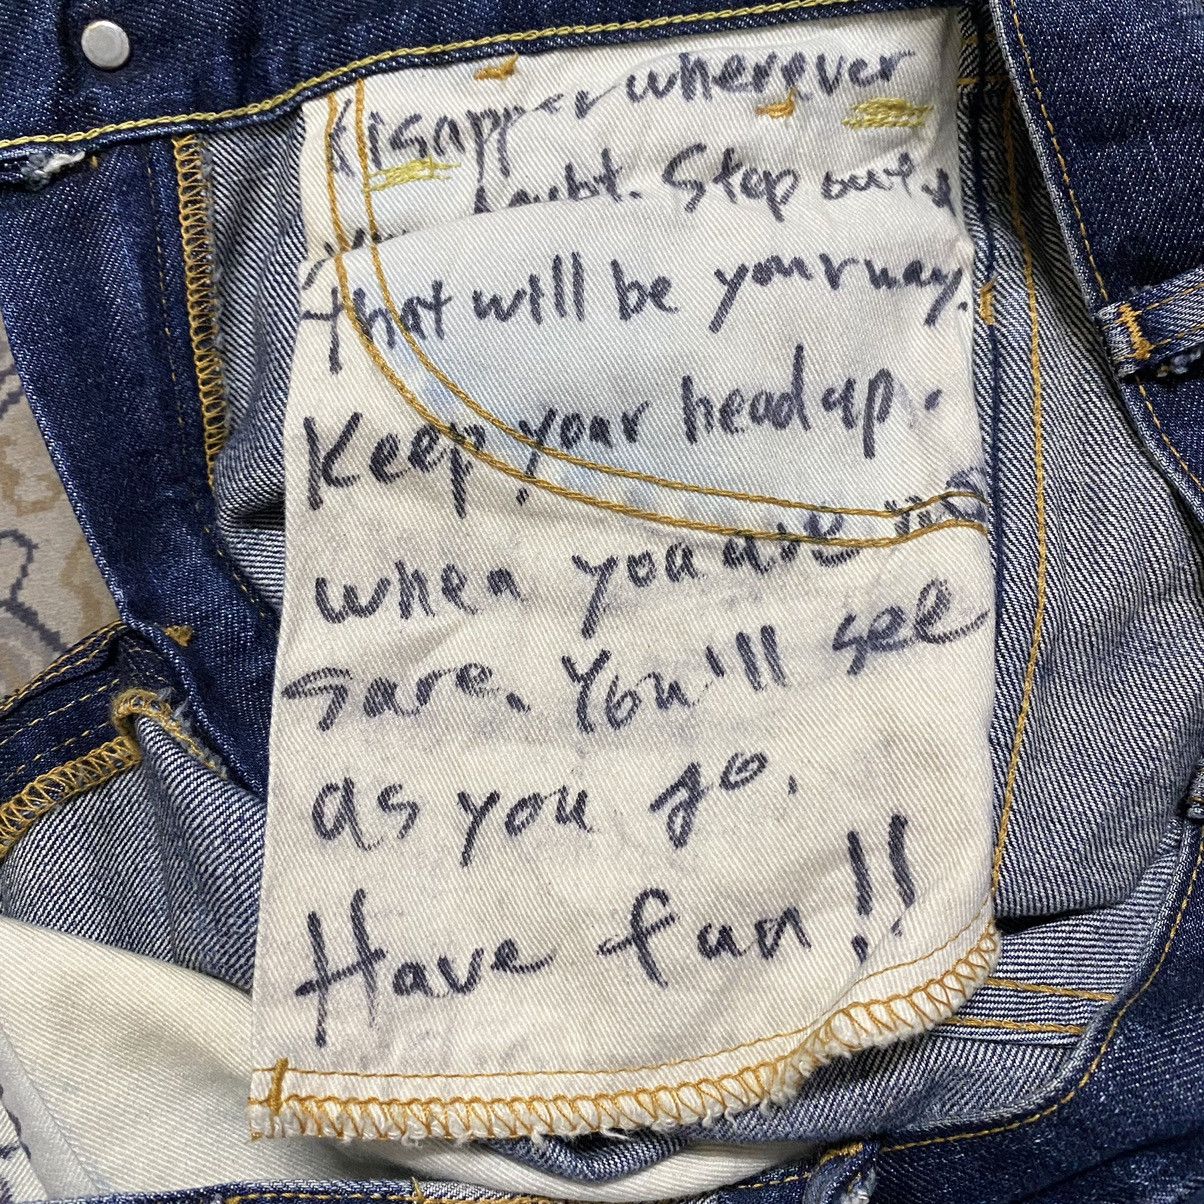 disapper wherever
doubt. Step out
that will be your way.
Keep your head up.
when you are not
sure. You'll see
as you go.
Have fun!!